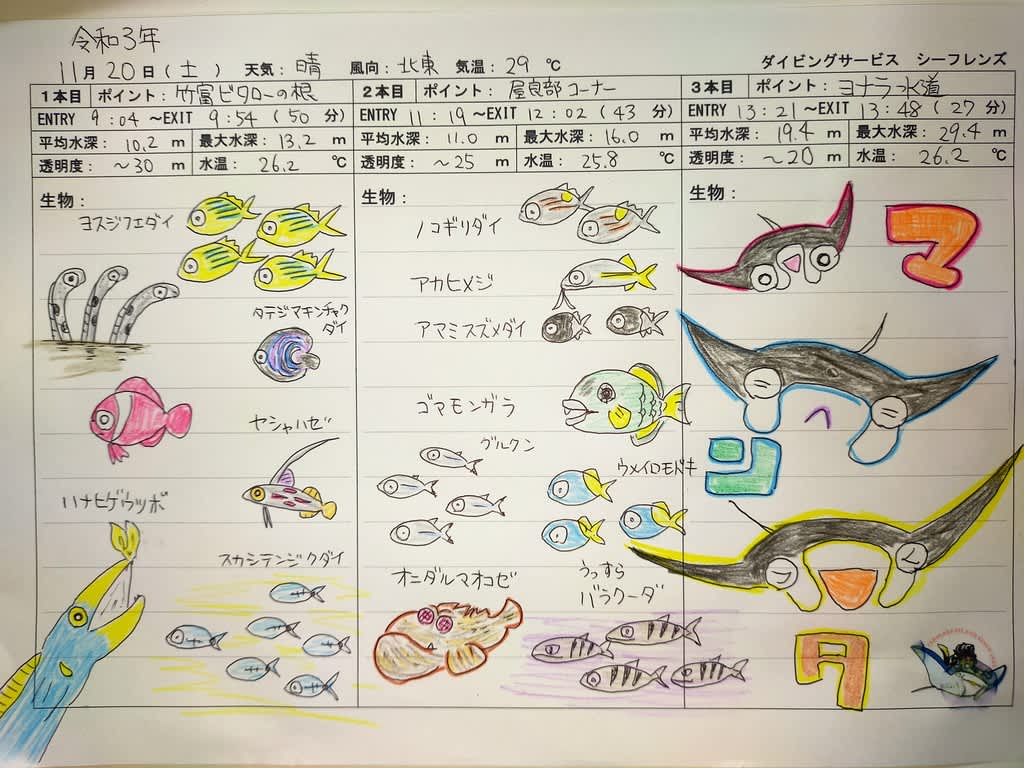 令和3年
11月20日(土) 天気:晴 風向:北東 気温:29℃ ダイビングサービス シーフレンズ
1本目 ポイント:竹富ビタローの根
ENTRY 9:04~EXIT 9:54(50分)
平均水深:10.2m 最大水深:13.2m
透明度:~30m 水温:26.2℃
生物:
ヨスジフエダイ
タテジマキンチャク
ダイ
ヤシャハゼ
ハナヒゲウツボ
スカシテンジクダイ
2本目 ポイント:屋良部コーナー
ENTRY 11:19~EXIT 12:02(43分)
平均水深:11.0m 最大水深:16.0m
透明度:~25m 水温:25.8℃
生物:
ノコギリダイ
アカヒメジ
アマミスズメダイ
ゴマモンガラ
グルクン
ウメイロモドキ
オニダルマオコゼ
うっすら
バラクーダ
3本目 ポイント:ヨナラ水道
ENTRY 13:21~EXIT 13:48(27分)
平均水深:19.4m 最大水深:29.4m
透明度:~20m 水温:26.2℃
生物:
マ
ン
タ